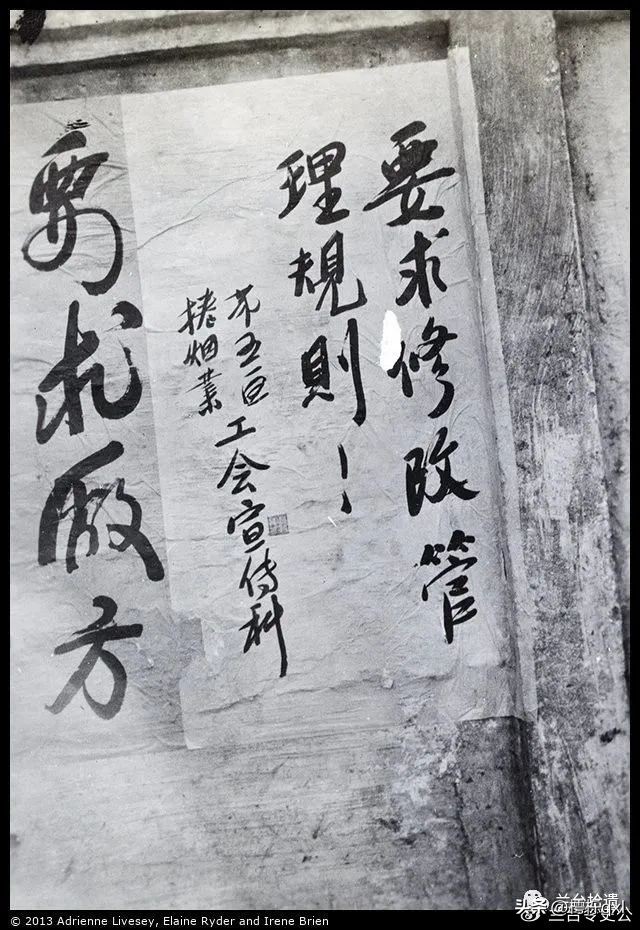 要求修改管
理規則！
㐧五区
捲烟業
工会宣传科
要求厰方
兰台拾遗
© 2013 Adrienne Livesey, Elaine Ryder and Irene Brien